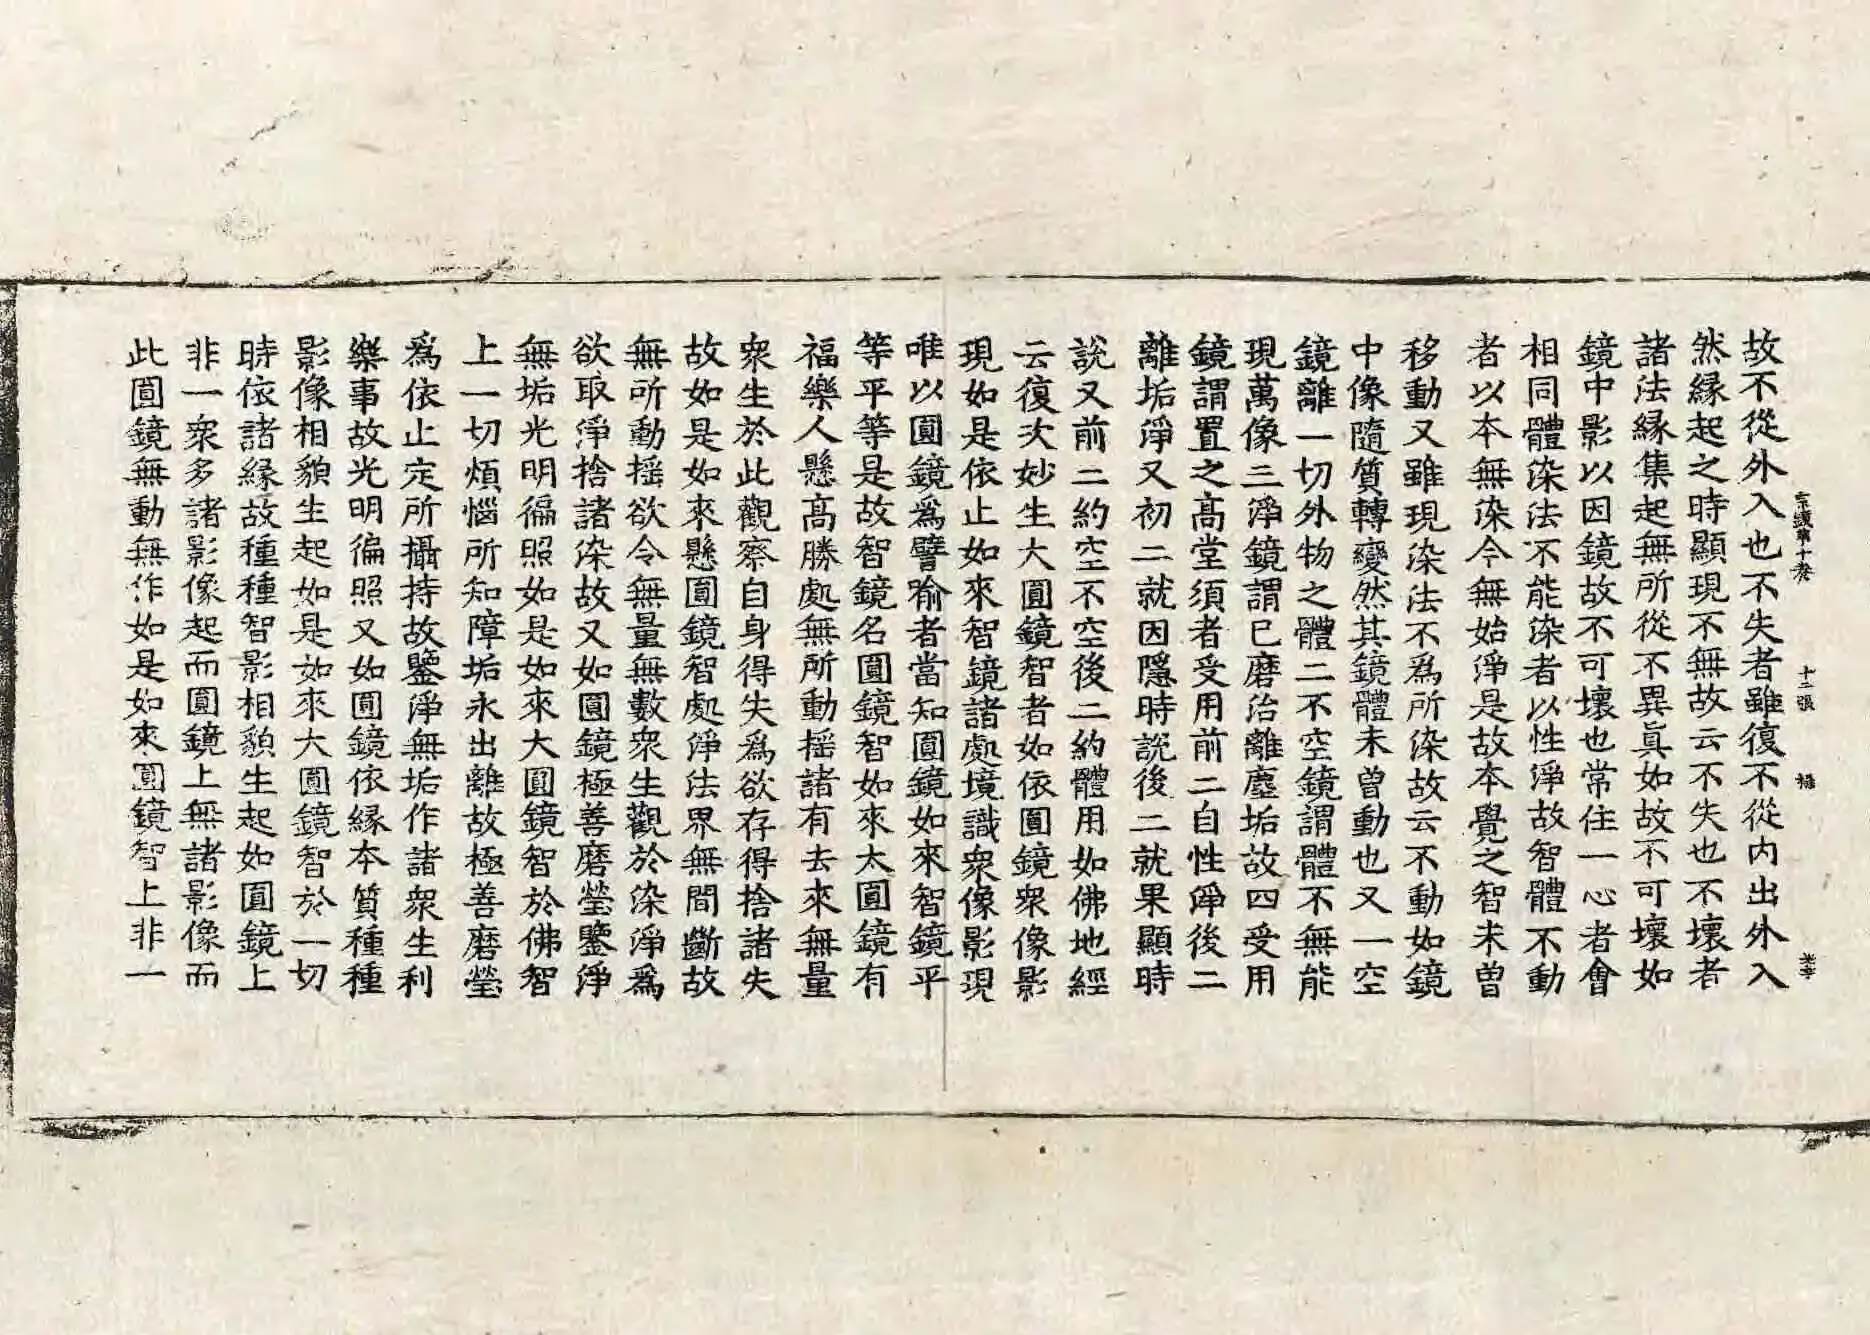 故不從外入也不失者雖復不從内出外入
宗鏡第十卷 十二張
然縁起之時顯現不無故云不失也不壞者
諸法縁集起無所從不異眞如故不可壞如
鏡中影以因鏡故不可壞也常住一心者會
相同體染法不能染者以性淨故智體不動
者以本無染今無始淨是故本覺之智未曾
移動又雖現染法不爲所染故云不動如鏡
中像隨質轉變然其鏡體未曾動也又一空
鏡離一切外物之體二不空鏡謂體不無能
現萬像三淨鏡謂已磨治離塵垢故四受用
鏡謂置之高堂須者受用前二自性淨後二
離垢淨又初二就因隱時説後二就果顯時
説又前二約空不空後二約體用如佛地經
云復次妙生大圓鏡智者如依圓鏡衆像影
現如是依止如來智鏡諸處境識衆像影現
唯以圓鏡爲譬喻者當知圓鏡如來智鏡平
等平等是故智鏡名圓鏡智如來太圓鏡有
福樂人懸高勝處無所動搖諸有去來無量
衆生於此觀察自身得失爲欲存得捨諸失
故如是如來懸圓鏡智處淨法界無間斷故
無所動搖欲令無量無數衆生觀於染淨爲
欲取淨捨諸染故又如圓鏡極善磨瑩鑒淨
無垢光明徧照如是如來大圓鏡智於佛智
上一切煩惱所知障垢永出離故極善磨瑩
爲依止定所攝持故鑒淨無垢作諸衆生利
樂事故光明徧照又如圓鏡依縁本質種種
影像相貌生起如是如來大圓鏡智於一切
時依諸縁故種種智影相貌生起如圓鏡上
非一衆多諸影像起而圓鏡上無諸影像而
此圓鏡無動無作如是如來圓鏡智上非一